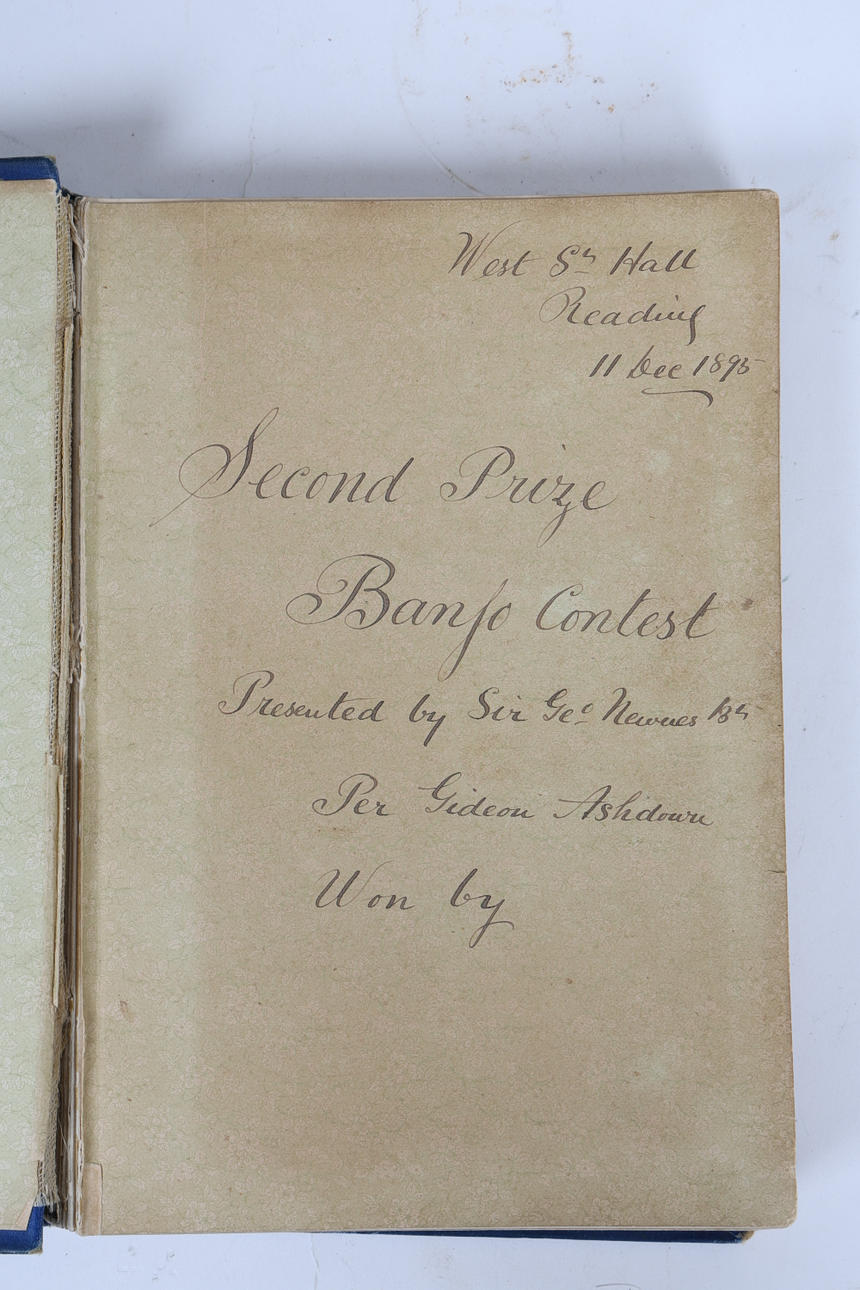 West St Hall
Reading
11 Dec 1895
Second Prize
Banjo Contest
Presented by Sir Geo Newnes Bt
Per Gideon Ashdown
Won by